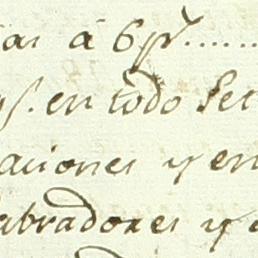 as á 6 p.s.......
en todo Set
aciones y en
abradores y